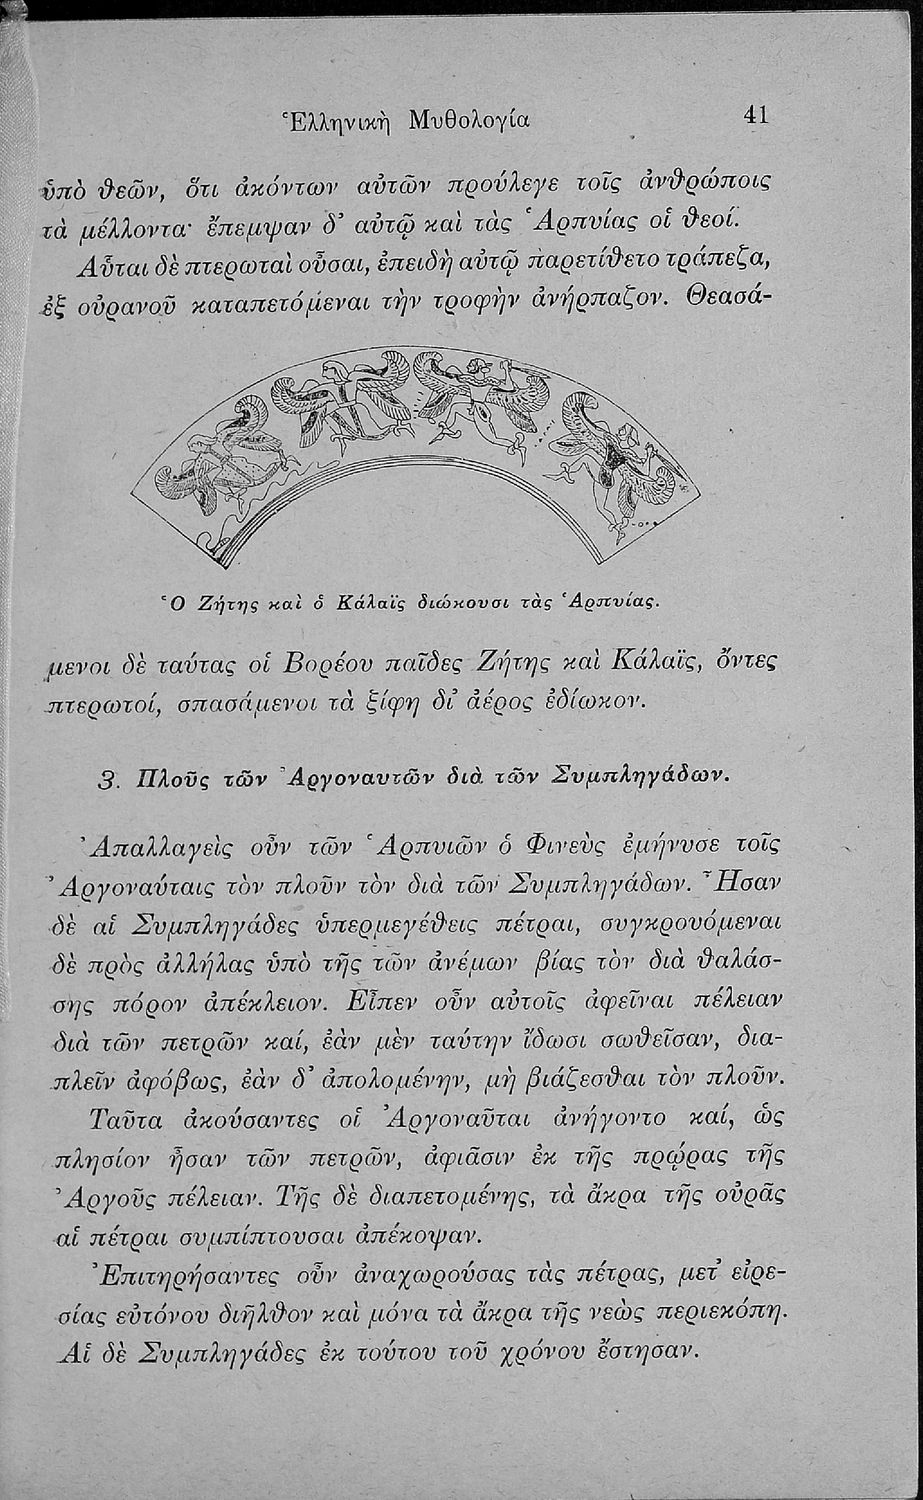 Ἑλληνικὴ Μυθολογία 41
ὑπὸ θεῶν, ὅτι ἀκόντων αὐτῶν προύλεγε τοῖς ἀνθρώποις
τὰ μέλλοντα· ἔπεμψαν δ’ αὐτῷ καὶ τὰς Ἁρπυίας οἱ θεοί.
Αὗται δὲ πτερωταὶ οὖσαι, ἐπειδὴ αὐτῷ παρετίθετο τράπεζα,
ἐξ οὐρανοῦ καταπετόμεναι τὴν τροφὴν ἀνήρπαζον. Θεασά-
Ὁ Ζήτης καὶ ὁ Κάλαϊς διώκουσι τὰς Ἁρπυίας.
μενοι δὲ ταύτας οἱ Βορέου παῖδες Ζήτης καὶ Κάλαϊς, ὄντες
πτερωτοί, σπασάμενοι τὰ ξίφη δι’ ἀέρος ἐδίωκον.
3. Πλοῦς τῶν Ἀργοναυτῶν διὰ τῶν Συμπληγάδων.
Ἀπαλλαγεὶς οὖν τῶν Ἁρπυιῶν ὁ Φινεὺς ἐμήνυσε τοῖς
Ἀργοναύταις τὸν πλοῦν τὸν διὰ τῶν Συμπληγάδων. Ἦσαν
δὲ αἱ Συμπληγάδες ὑπερμεγέθεις πέτραι, συγκρουόμεναι
δὲ πρὸς ἀλλήλας ὑπὸ τῆς τῶν ἀνέμων βίας τὸν διὰ θαλάσ-
σης πόρον ἀπέκλειον. Εἶπεν οὖν αὐτοῖς ἀφεῖναι πέλειαν
διὰ τῶν πετρῶν καί, ἐὰν μὲν ταύτην ἴδωσι σωθεῖσαν, δια-
πλεῖν ἀφόβως, ἐὰν δ’ ἀπολομένην, μὴ βιάζεσθαι τὸν πλοῦν.
Ταῦτα ἀκούσαντες οἱ Ἀργοναῦται ἀνήγοντο καί, ὡς
πλησίον ἦσαν τῶν πετρῶν, ἀφιᾶσιν ἐκ τῆς πρῴρας τῆς
Ἀργοῦς πέλειαν. Τῆς δὲ διαπετομένης, τὰ ἄκρα τῆς οὐρᾶς
αἱ πέτραι συμπίπτουσαι ἀπέκοψαν.
Ἐπιτηρήσαντες οὖν ἀναχωρούσας τὰς πέτρας, μετ’ εἰρε-
σίας εὐτόνου διῆλθον καὶ μόνα τὰ ἄκρα τῆς νεὼς περιεκόπη.
Αἱ δὲ Συμπληγάδες ἐκ τούτου τοῦ χρόνου ἔστησαν.